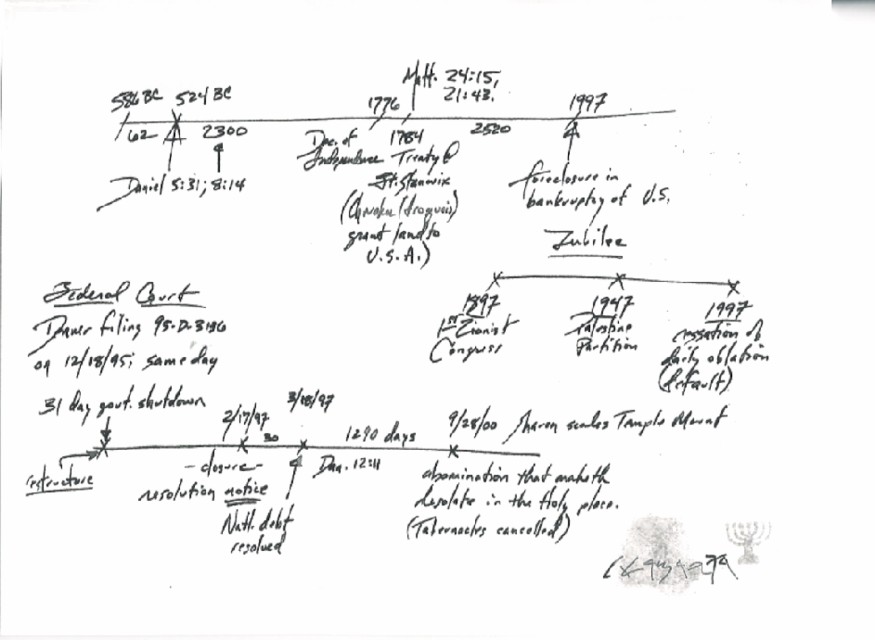 Matt. 24:15,
21:43.
586 BC 524 BC
1776
1997
62
2300
1784
2520
Daniel 5:31; 8:14
Dec. of
Independence
Treaty @
Ft. Stanwix
(Cherokee/Iroquois)
grant land to
U.S.A.)
foreclosure in
bankruptcy of U.S.
Jubilee
1897
1947
1997
1st Zionist
Congress
Palestine
Partition
cessation of
daily oblation
(default)
Federal Court
filing 95-D-3196
on 12/18/95; same day
31 day govt. shutdown
restructure
2/17/97
3/18/97
30
1290 days
Dan. 12:11
9/28/00 Sharon scales Temple Mount
- closure -
resolution notice
Natl. debt
resolved
abomination that maketh
desolate in the Holy place.
(Tabernacles cancelled)